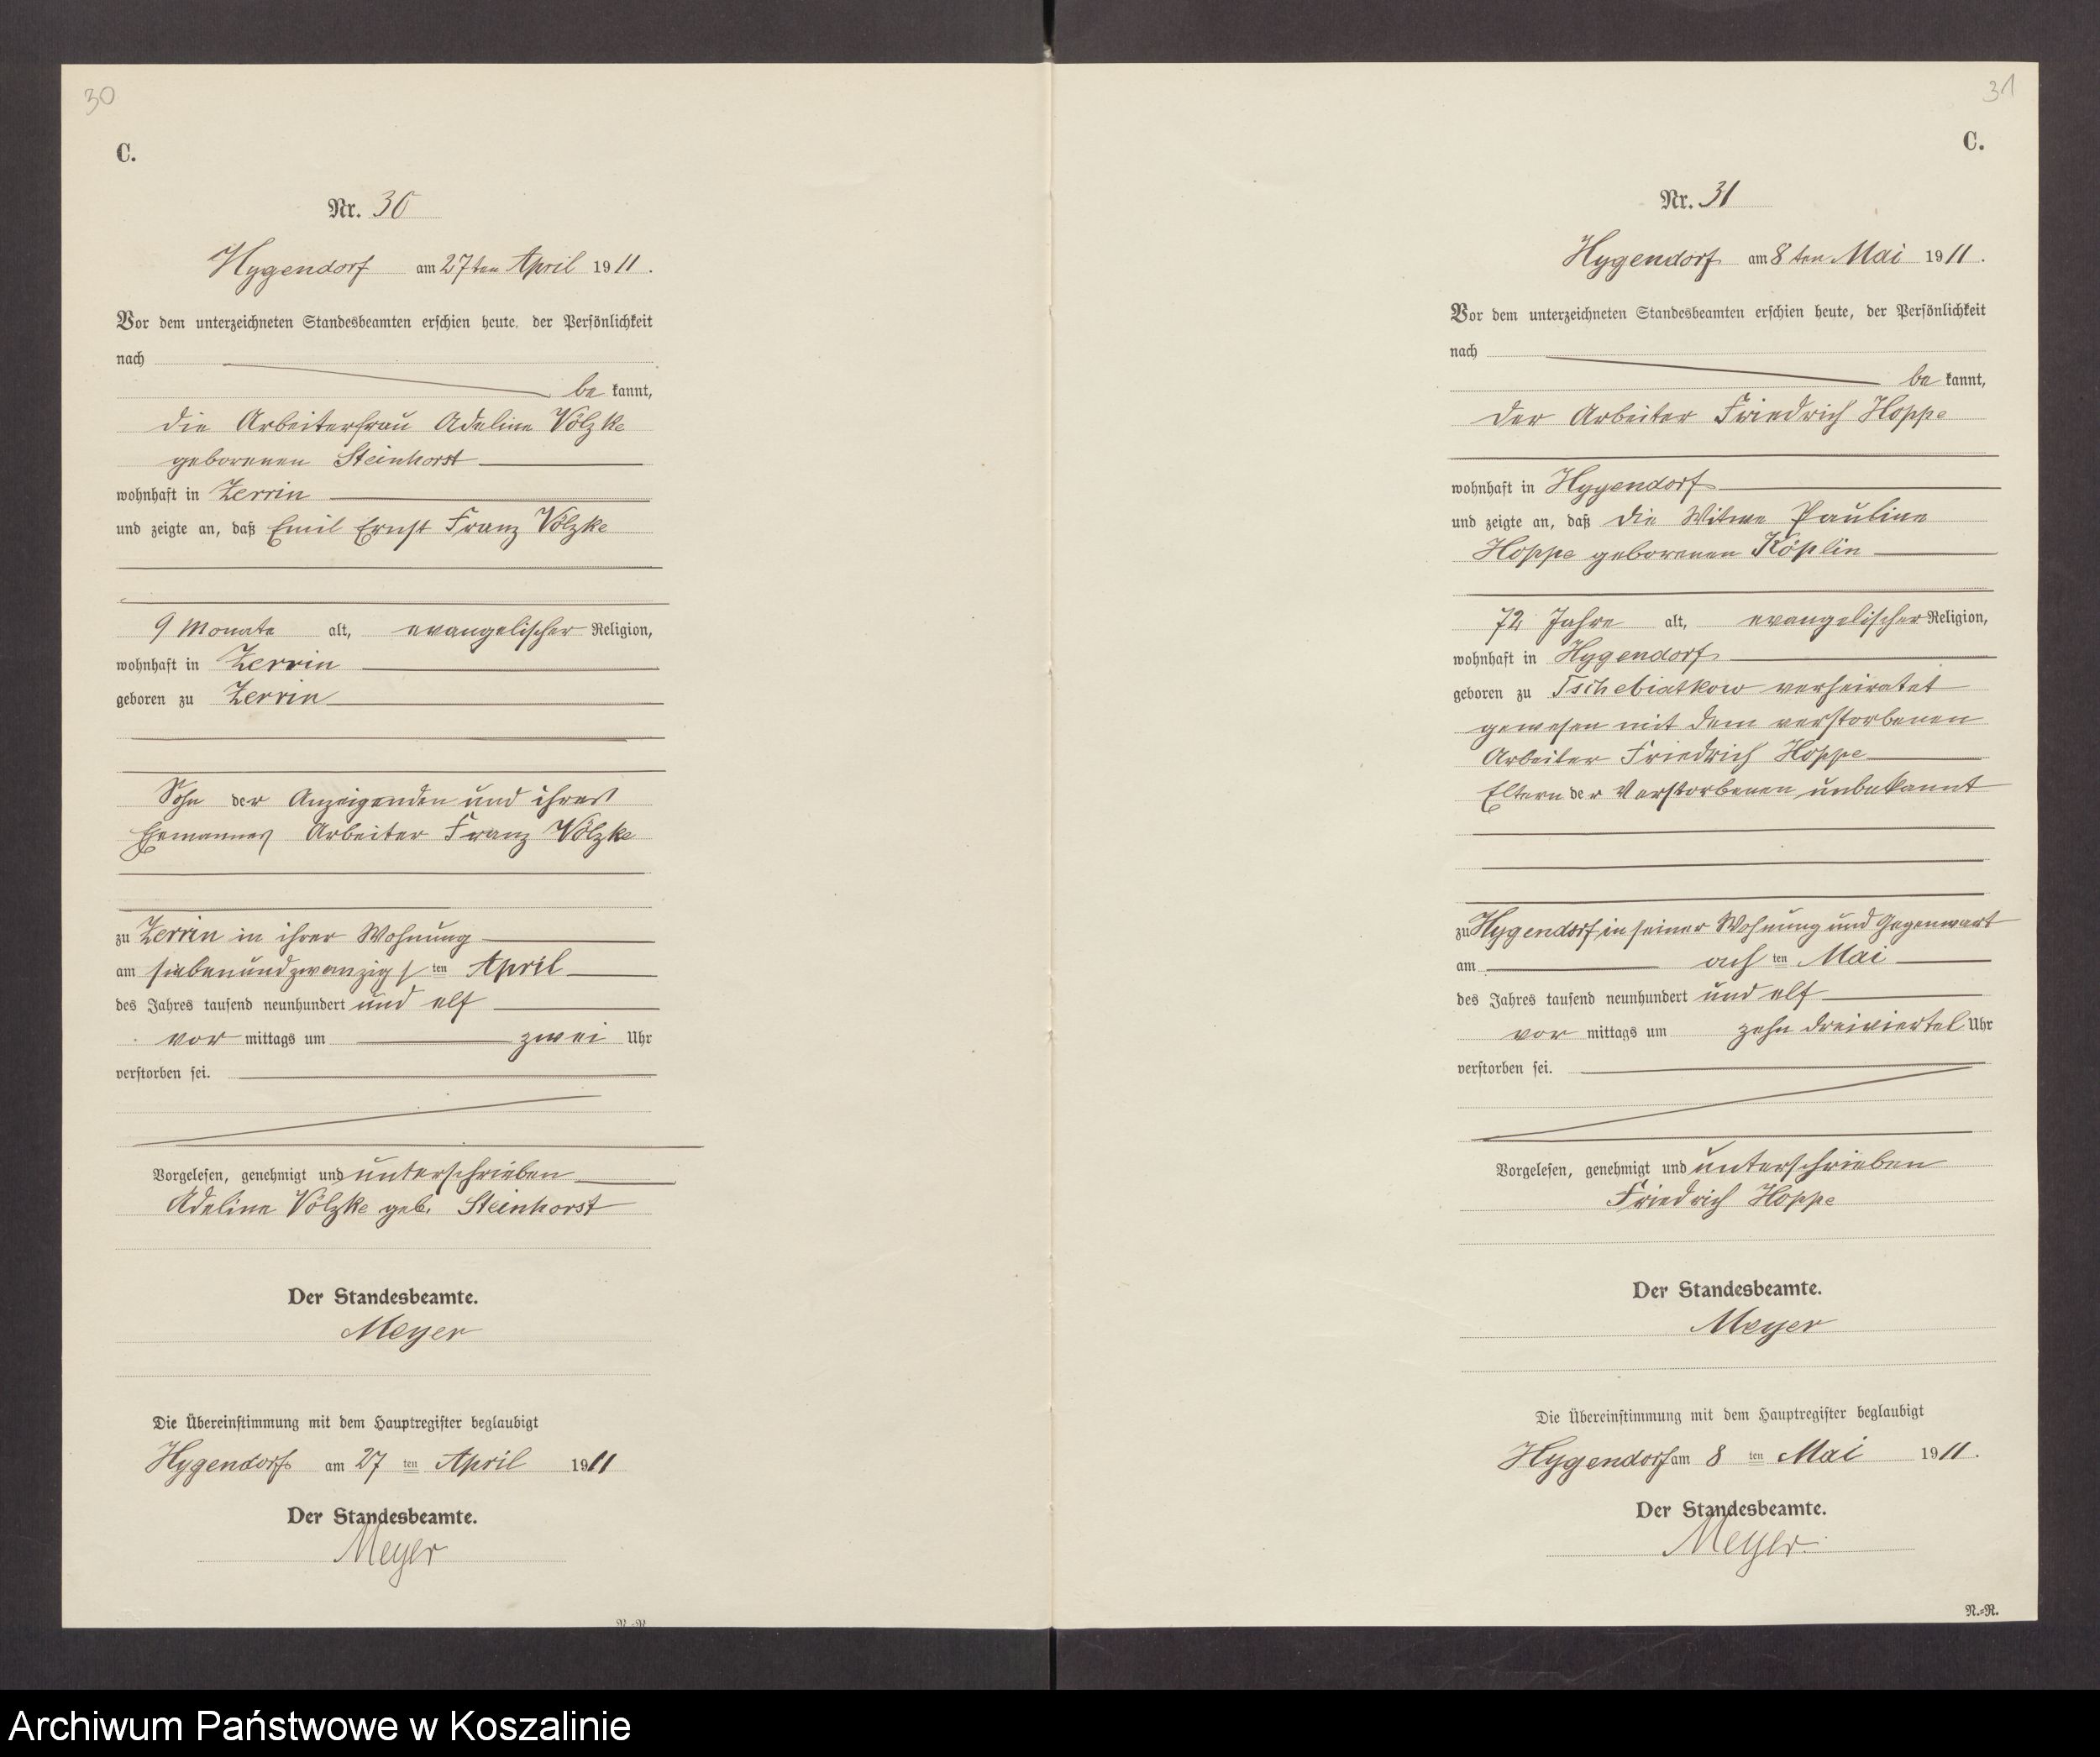 30
C.
Nr. 30
Hygendorf am 27ten April 1911.
Vor dem unterzeichneten Standesbeamten erschien heute, der Persönlichkeit
nach
be kannt,
die Arbeiterfrau Adeline Völzke
geborenen Steinhorst
wohnhaft in Zerrin
und zeigte an, daß Emil Ernst Franz Völzke
9 Monate alt, evangelischer Religion,
wohnhaft in Zerrin
geboren zu Zerrin
Sohn der Anzeigenden und ihres
Ehemannes Arbeiter Franz Völzke
zu Zerrin in ihrer Wohnung
am siebenundzwanzigsten April
des Jahres tausend neunhundert und elf
vor mittags um zwei Uhr
verstorben sei.
Vorgelesen, genehmigt und unterschrieben
Adeline Völzke geb. Steinhorst
Der Standesbeamte.
Meyer
Die Übereinstimmung mit dem Hauptregister beglaubigt
Hygendorf am 27 ten April 1911
Der Standesbeamte.
Meyer
31
C.
Nr. 31
Hygendorf am 8ten Mai 1911.
Vor dem unterzeichneten Standesbeamten erschien heute, der Persönlichkeit
nach
be kannt,
der Arbeiter Friedrich Hoppe
wohnhaft in Hygendorf
und zeigte an, daß die Witwe Pauline
Hoppe geborenen Köplin
72 Jahre alt, evangelischer Religion,
wohnhaft in Hygendorf
geboren zu Tschebiatkow verheiratet
gewesen mit dem verstorbenen
Arbeiter Friedrich Hoppe
Eltern der Verstorbenen unbekannt
zu Hygendorf in seiner Wohnung und Gegenwart
am ach ten Mai
des Jahres tausend neunhundert und elf
vor mittags um zehn dreiviertel Uhr
verstorben sei.
Vorgelesen, genehmigt und unterschrieben
Friedrich Hoppe
Der Standesbeamte.
Meyer
Die Übereinstimmung mit dem Hauptregister beglaubigt
Hygendorf am 8 ten Mai 1911.
Der Standesbeamte.
Meyer
N.-R.
Archiwum Państwowe w Koszalinie